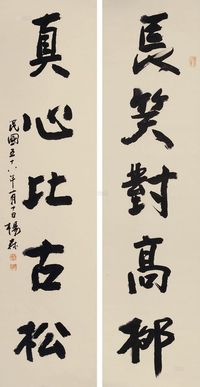 長笑對高柳
真心比古松
民國五十八年一月十日楊森